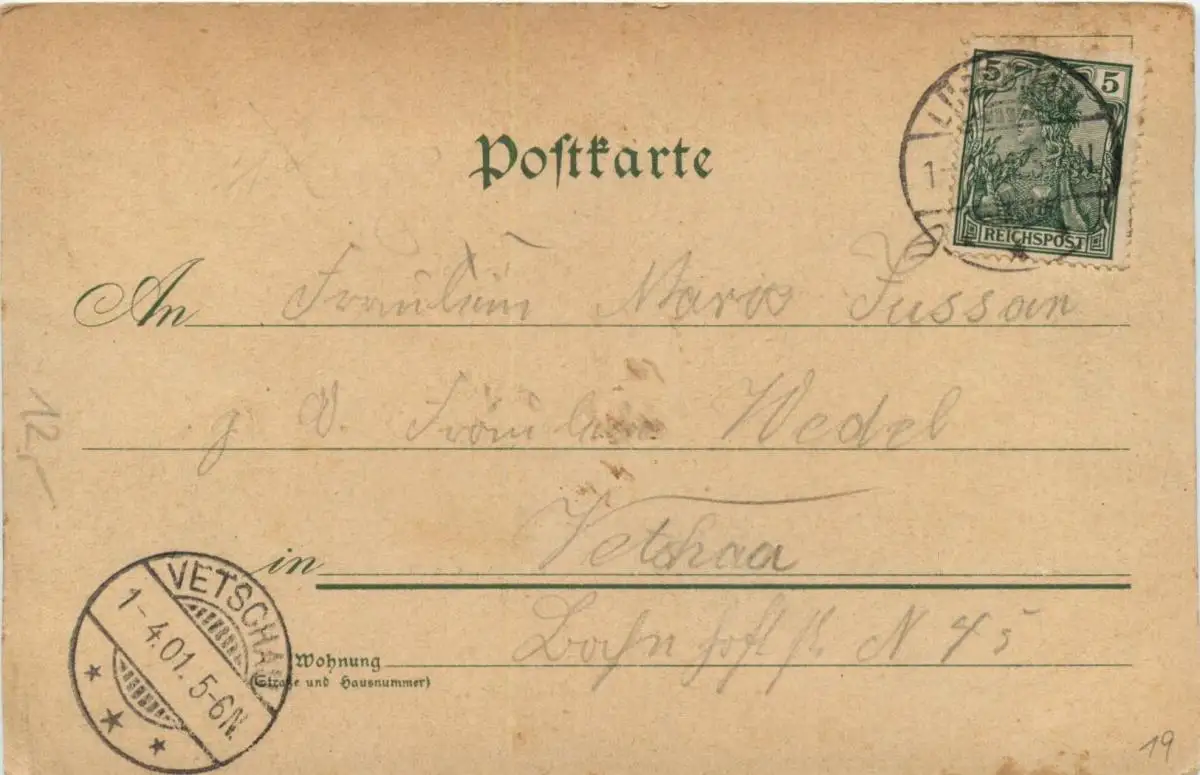 5 5
REICHSPOST
Postkarte
An Fräulein Marie Jussan
Fräulein Wedel
in Vetschau
Wohnung Bahnhofstr N 45
(Straße und Hausnummer)
VETSCHAU
1-4.01. 5-6N.
12,-
19